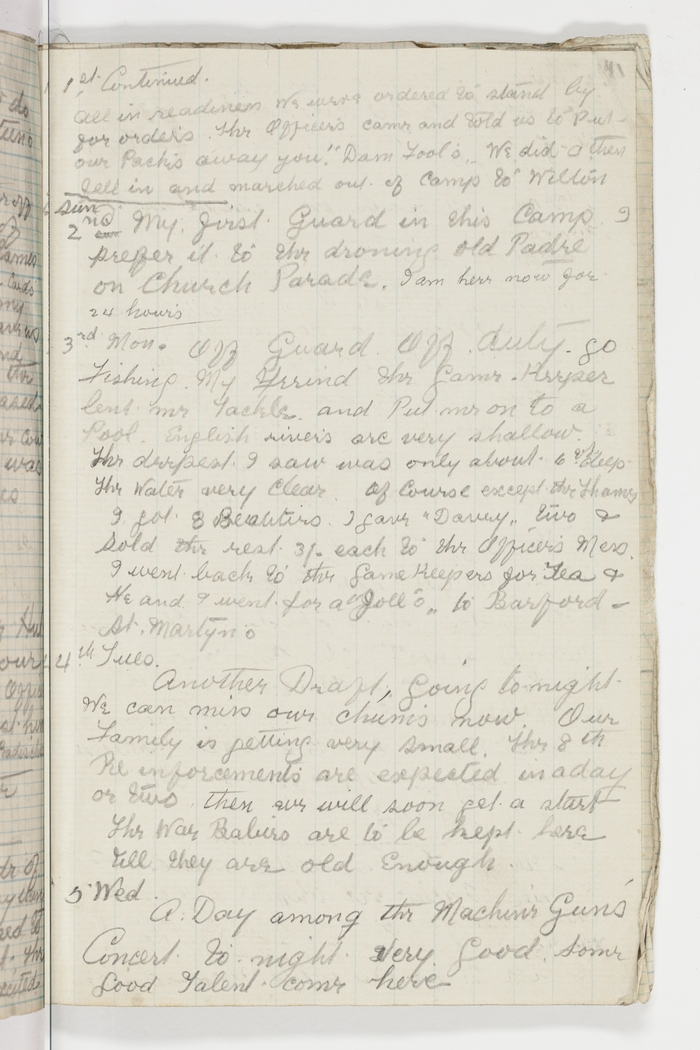 41
1st Continued.
all in readiness We were ordered to stand by
for orders. The Officers came and told us to Put
our Packs away you "Dam Fool's". We did & then
fell in and marched out of Camp to Wilton
Sun
2nd My first Guard in this Camp I
prefer it to the droning old Padre
on Church Parade. I am here now for
24 hours
3rd Mon. Off Guard. Off duty. go
Fishing. My Freind the Game-Keeper
lent me Tackle. and Put me on to a
Pool. English rivers are very shallow.
The deepest I saw was only about 6 ft deep
The Water very Clear. Of Course except the Thames
I got 8 Beautirs. I gave "Davey" two &
Sold the rest 3/- each to the Officers Mess.
I went back to the Game Keepers for Tea &
He and I went for a "Joll" to Barford-
St. Martyns
4th Tues.
Another Draft, going to night
We can miss our chums now. Our
Family is getting very small. The 8th
Re inforcements are expected in a day
or two then we will soon get a start
The War Babies are to be kept here
till they are old Enough.
5 Wed
A Day among the Machine Guns
Concert to night Very Good some
Good Talent come here